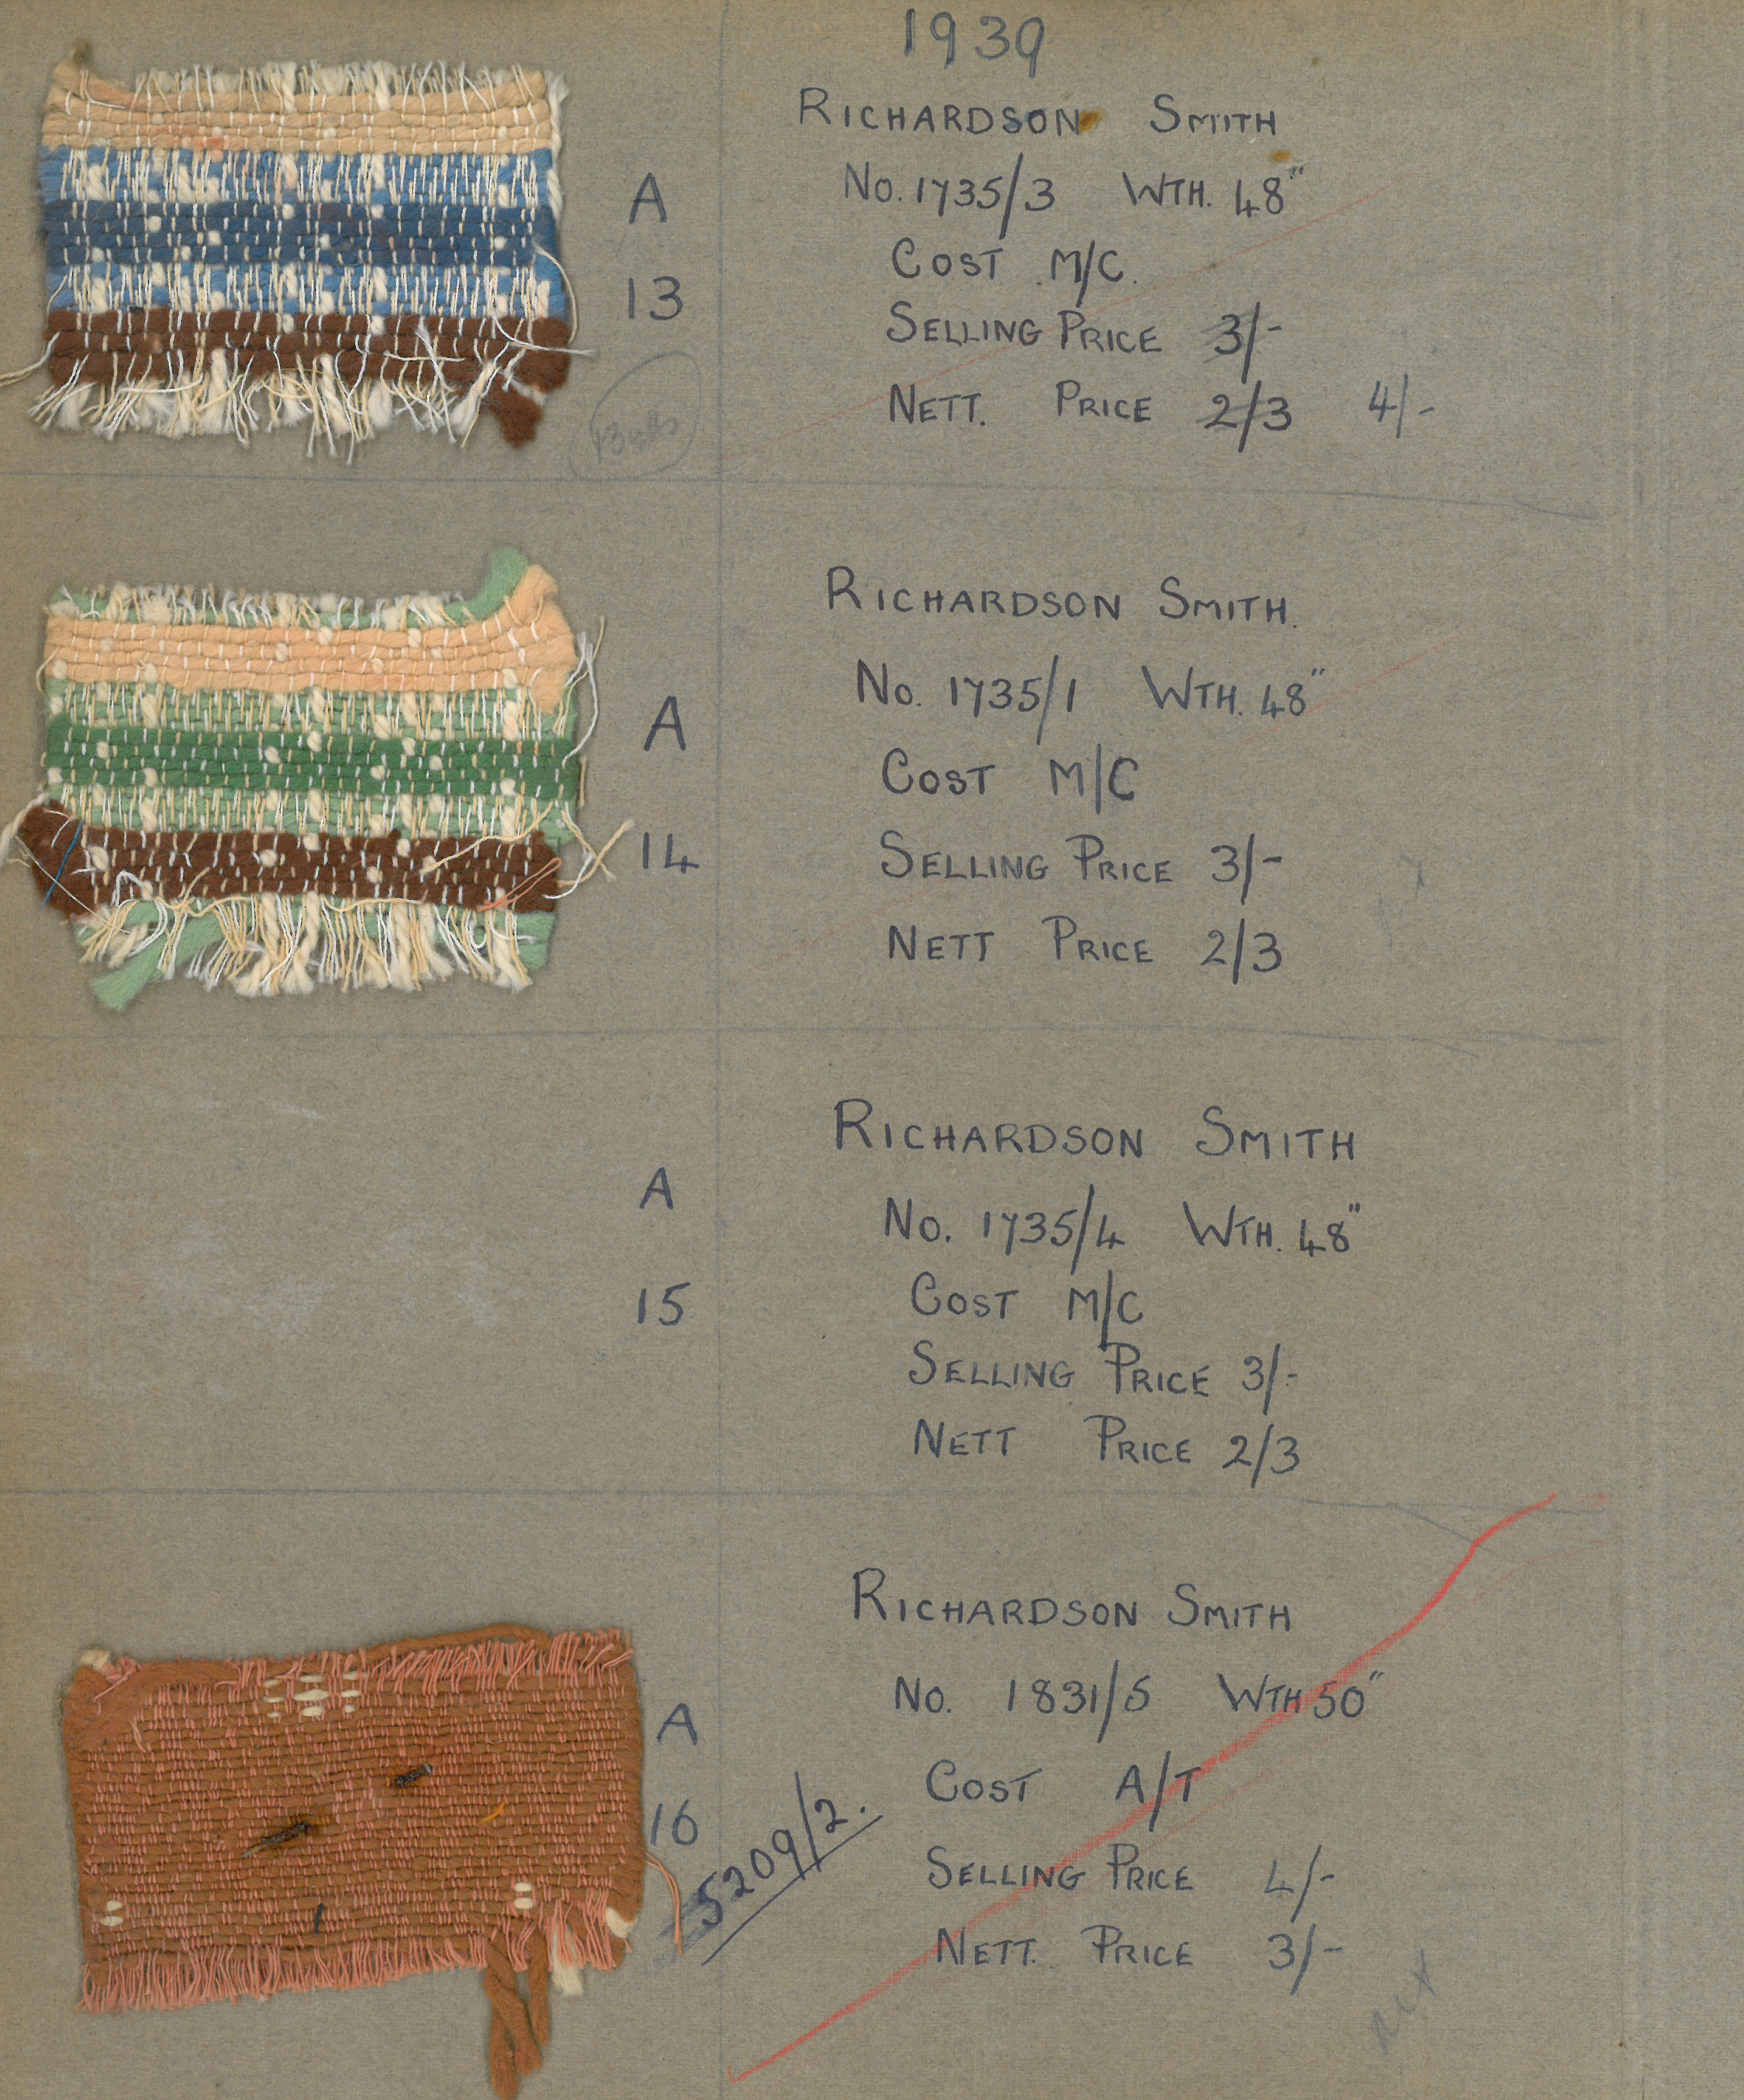 1939
RICHARDSON SMITH
A
No. 1735/3 WTH. 48"
COST M/C.
13
SELLING PRICE 3/-
NETT. PRICE 2/3 4/-
13 yds
RICHARDSON SMITH.
No. 1735/1 WTH. 48"
A
COST M/C
14
SELLING PRICE 3/-
NETT PRICE 2/3
RICHARDSON SMITH
A
No. 1735/4 WTH. 48"
15
COST M/C
SELLING PRICE 3/-
NETT PRICE 2/3
RICHARDSON SMITH
No. 1831/5 WTH 50"
A
COST A/T
16
5209/2.
SELLING PRICE 4/-
NETT. PRICE 3/-